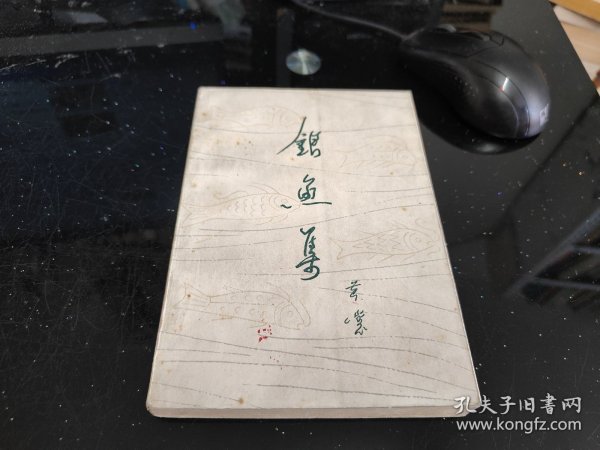 銀鱼集
孔夫子旧書网
www.kongfz.com